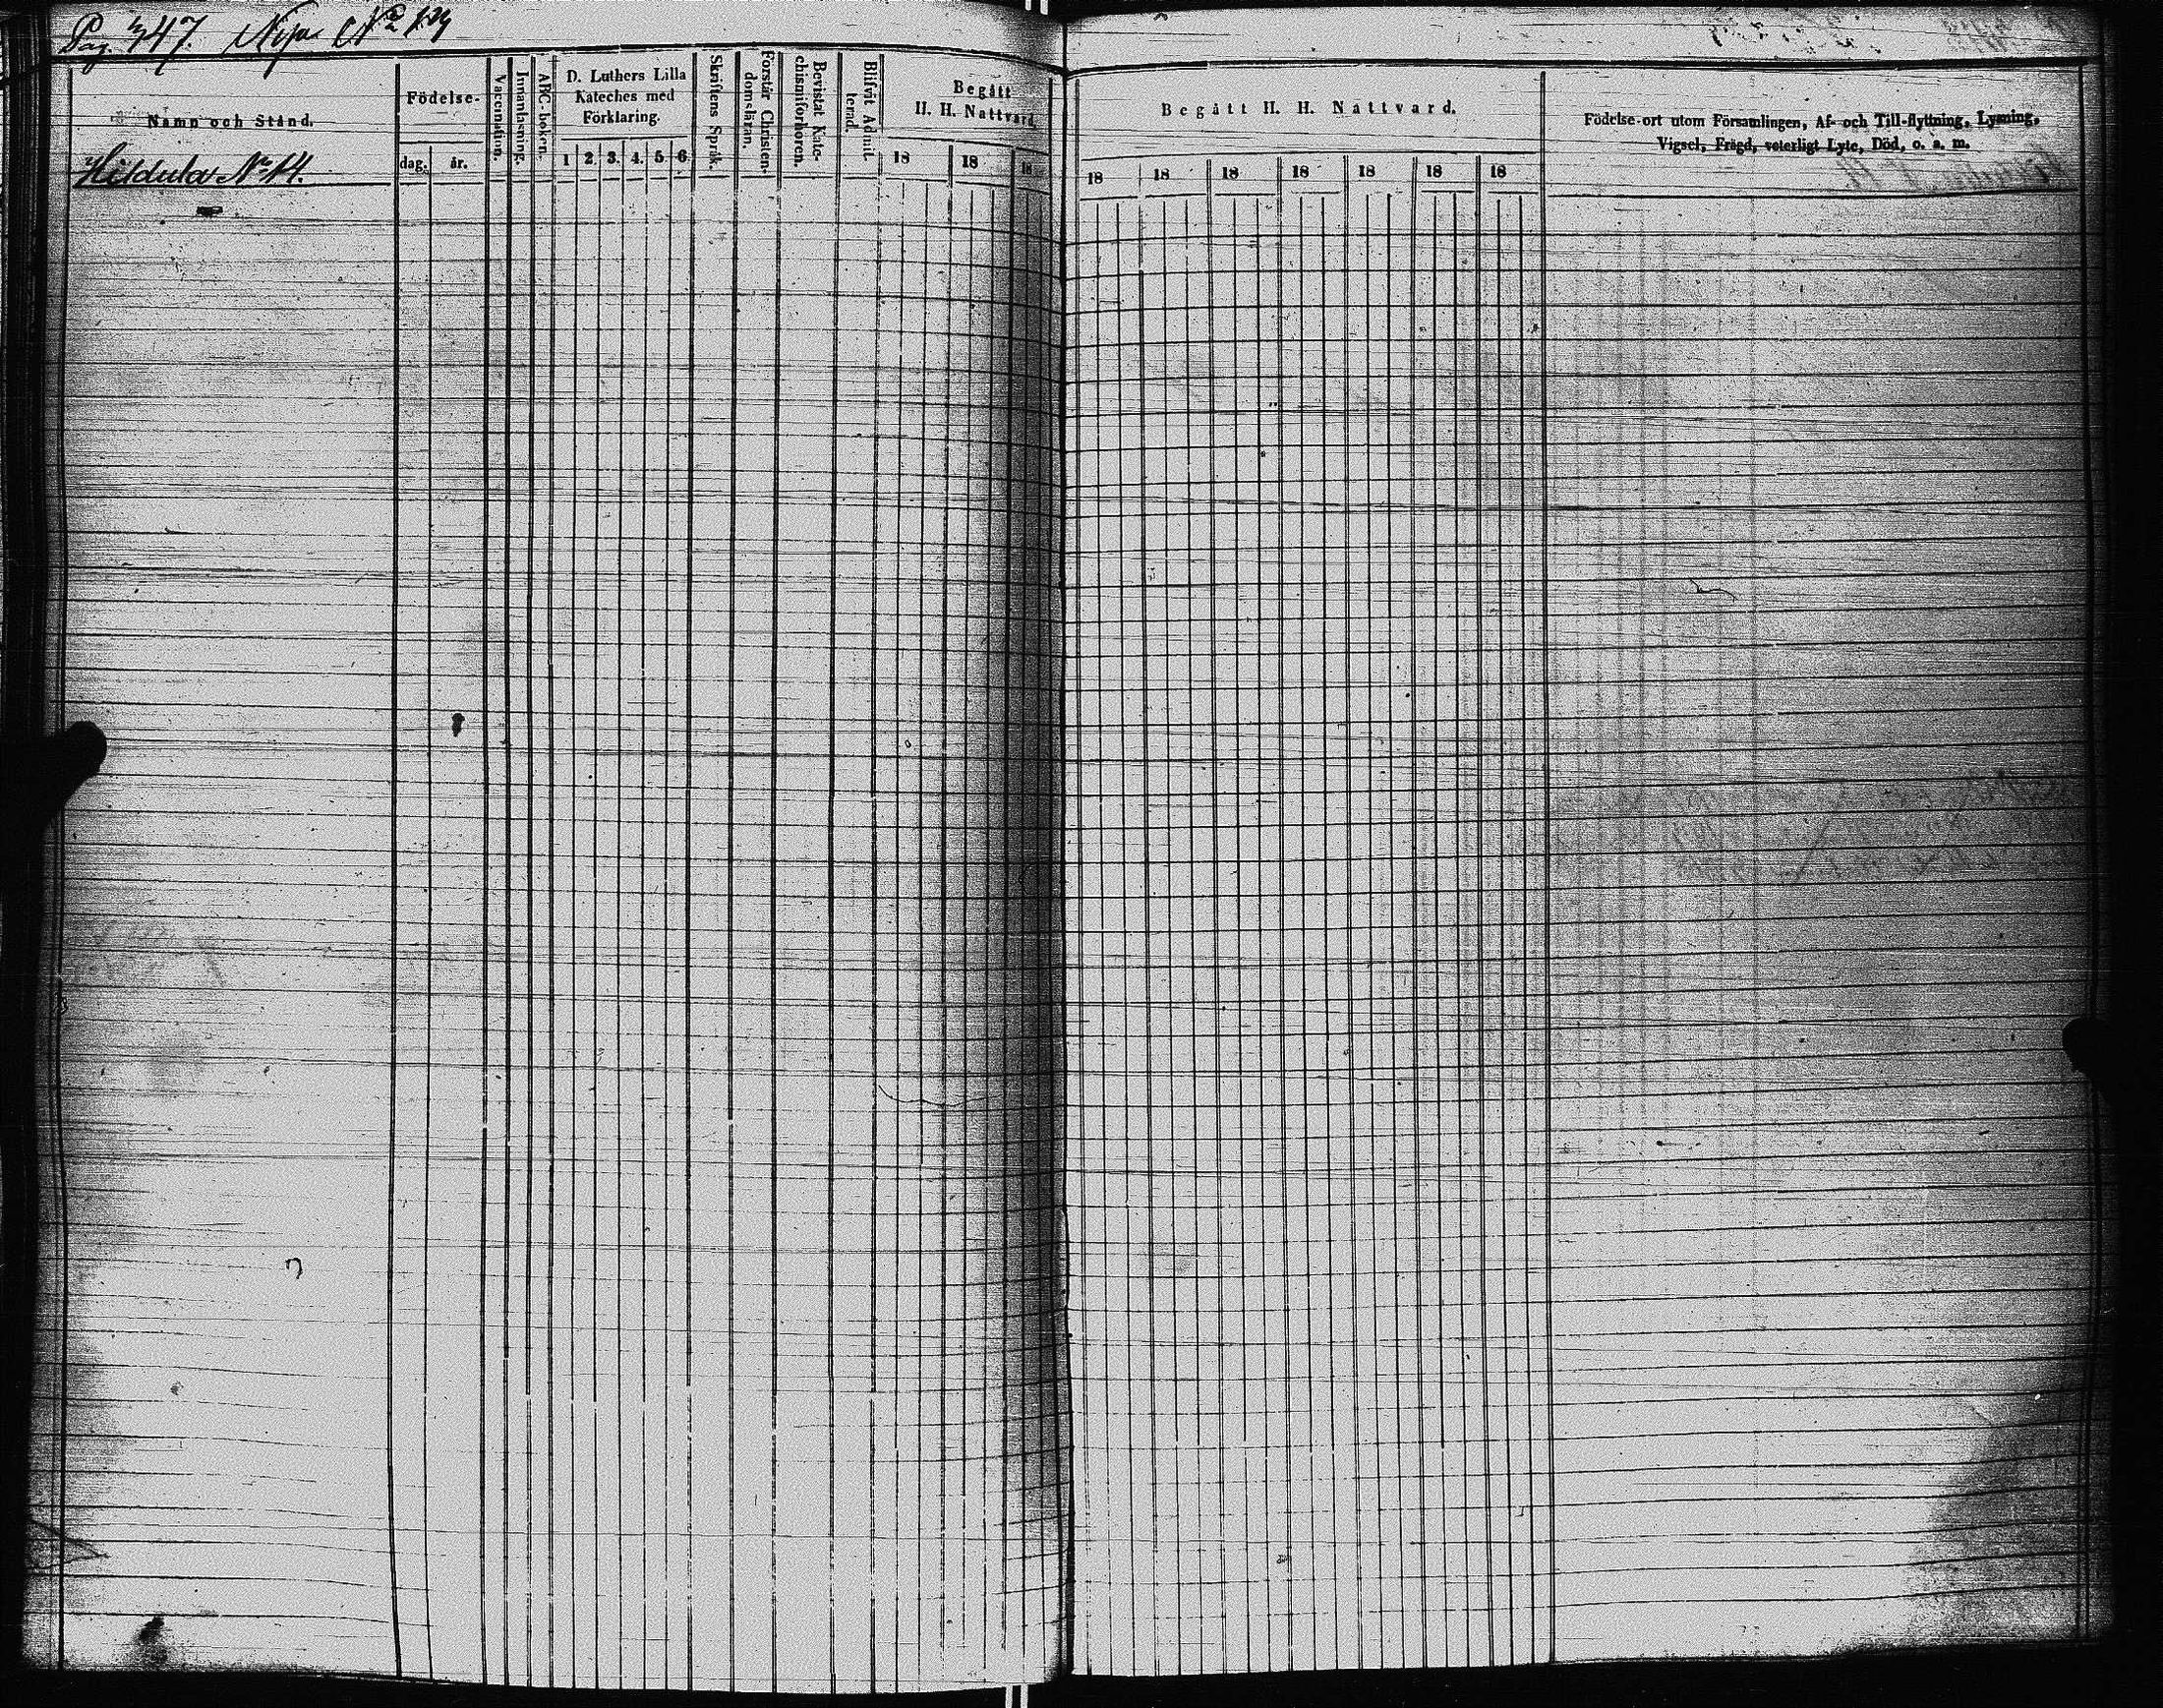 Pag. 347. Nya No
Namn och Stånd.
Hildula No 14.
Födelse-
dag. år.
Vaccination.
Innanläsning.
ABC-boken.
D. Luthers Lilla
Kateches med
Förklaring.
1 2. 3. 4. 5 6
Skriftens Språk.
Förstår Christen-
domsläran.
Bevistat Kate-
chismiförhören.
Blifvit Admit-
terad.
Begått
H. H. Nattvard.
18 18 18
Begått H. H. Nattvard.
18 18 18 18 18 18 18
Födelse-ort utom Församlingen, Af- och Till-flyttning, Lysning,
Vigsel, Frägd, veterligt Lyte, Död, o. s. m.